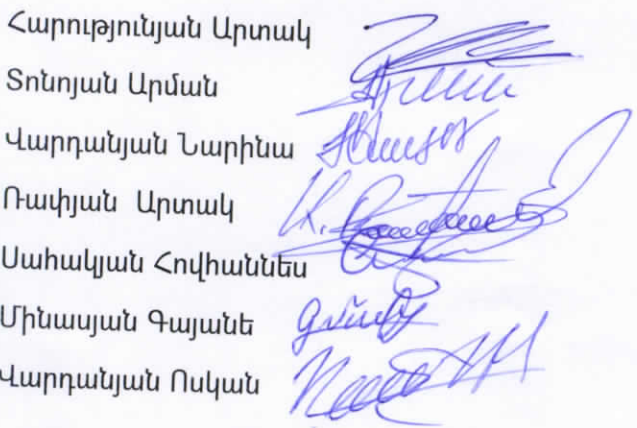 Հարությունյան Արտակ
Տոնոյան Արման
Վարդանյան Նարինա
Ռափյան Արտակ
Սահակյան Հովհաննես
Մինասյան Գայանե
Վարդանյան Ոսկան